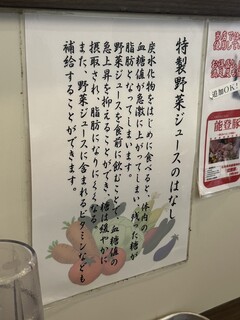 特製野菜ジュースのはなし
炭水化物をはじめに食べると、体内の
血糖値が急激に上がってしまい、残った糖が
脂肪となってしまいます
野菜ジュースを食前に飲むことで、血糖値の
急上昇を抑えることができ、糖は緩やかに
摂取され、脂肪になりにくくなる。
また、野菜ジュースに含まれるビタミンなども
補給することができます。
追加OK!
能登豚